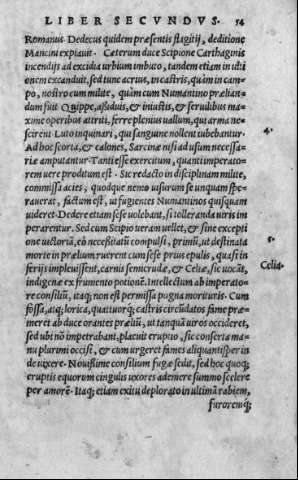 LIBER SECVNDVS. 54
Romanus Dedecus quidem præsentis flagitij, deditione
Mancini expiauit. Cæterum duce Scipione Carthaginis
incendijs ad excidia urbium imbuto, tandem etiam in ulti
onem excanduit, sed tunc acrius, in castris, quàm in cam=
po, nostro cum milite, quàm cum Numantino prælian=
dum fuit Quippe, assiduis, & iniustis, & seruilibus ma=
xime operibus attriti, ferre plenius uallum, qui arma ne=
scirent. Luto inquinari, qui sanguine nollent iubebantur.
Ad hoc scorta, & calones, Sarcinæ nisi ad usum necessa=
riæ amputantur. Tanti esse exercitum, quanti imperato=
rem uere proditum est. Sic redacto in disciplinam milite,
commissa acies, quodque nemo uisurum se unquam spe=
rauerat, factum est, ut fugientes Numantinos quisquam
uideret. Dedere etiam sese uolebant, si tolleranda uiris im
perarentur. Sed cum Scipio ueram uellet, & sine excepti
one uictoriã, eò necessitatis compulsi, primũ, ut destinata
morte in prælium ruerent cum sese prius epulis, quasi in
ferijs impleuissent, carnis semicrudæ, & Celiæ, sic uocãt,
indigenæ ex frumento potionẽ. Intellectum ab imperato=
re consiliũ, itaq; non est permissa pugna morituris. Cum
fossa, atq; lorica, quatuorq; castris circũdatos fame præ=
meret ab duce orantes præliũ, ut tanquã uiros occideret,
sed ubi nõ impetrabant, placuit eruptio, sic conserta ma=
nu plurimi occisi, & cum urgeret fames aliquantisper in
de uixere. Nouissime consilium fugæ sedit, sed hoc quoq;
eruptis equorum cingulis uxores ademere summo scelere
per amorẽ. Itaq; etiam exitu deplorato in ultimã rabiem,
furoremq;
4.
5.
Celia.